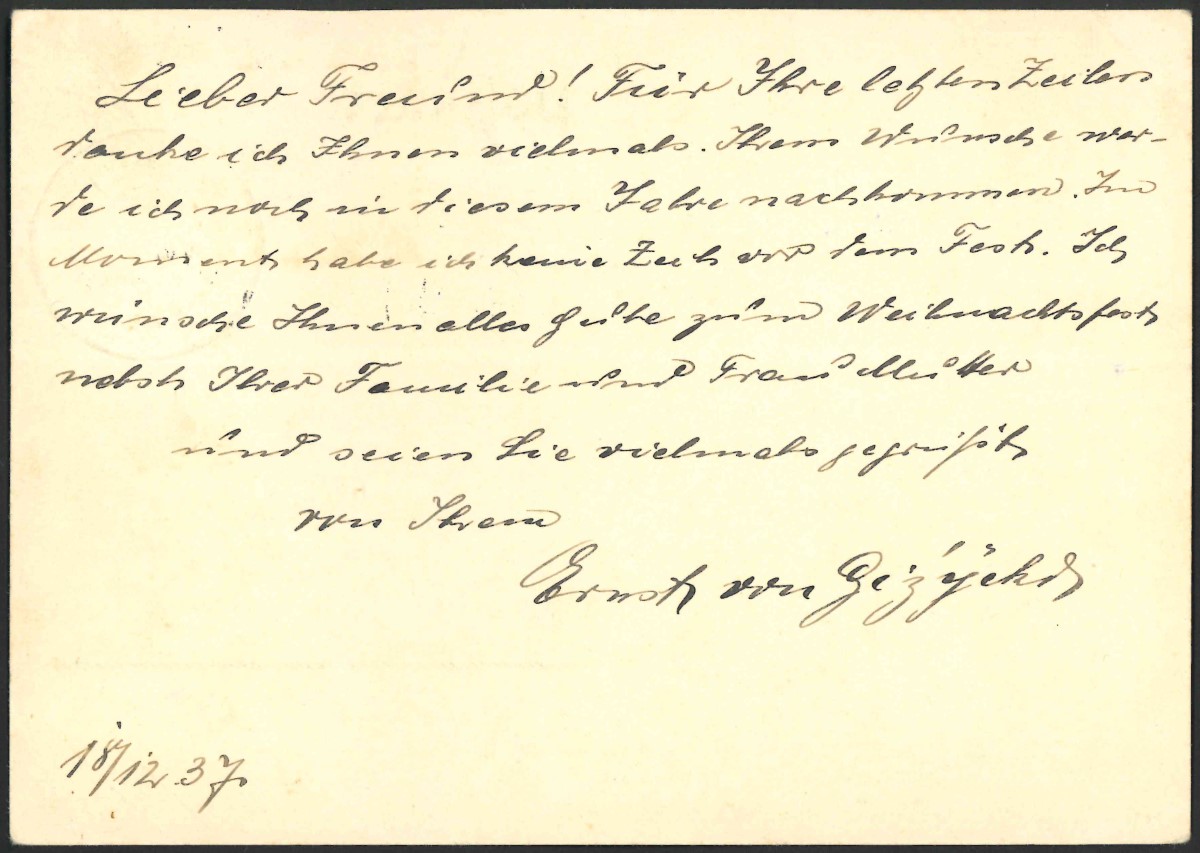 Lieber Freund! Für Ihre letzten Zeilen
danke ich Ihnen vielmals. Ihrem Wunsche wer-
de ich noch in diesem Jahre nachkommen. Im
Moment habe ich keine Zeit vor dem Fest. Ich
wünsche Ihnen alles Gute zum Weihnachtsfest
nebst Ihrer Familie und Frau Mutter
und seien Sie vielmals gegrüßt
von Ihrem
Ernst von
18/12 37